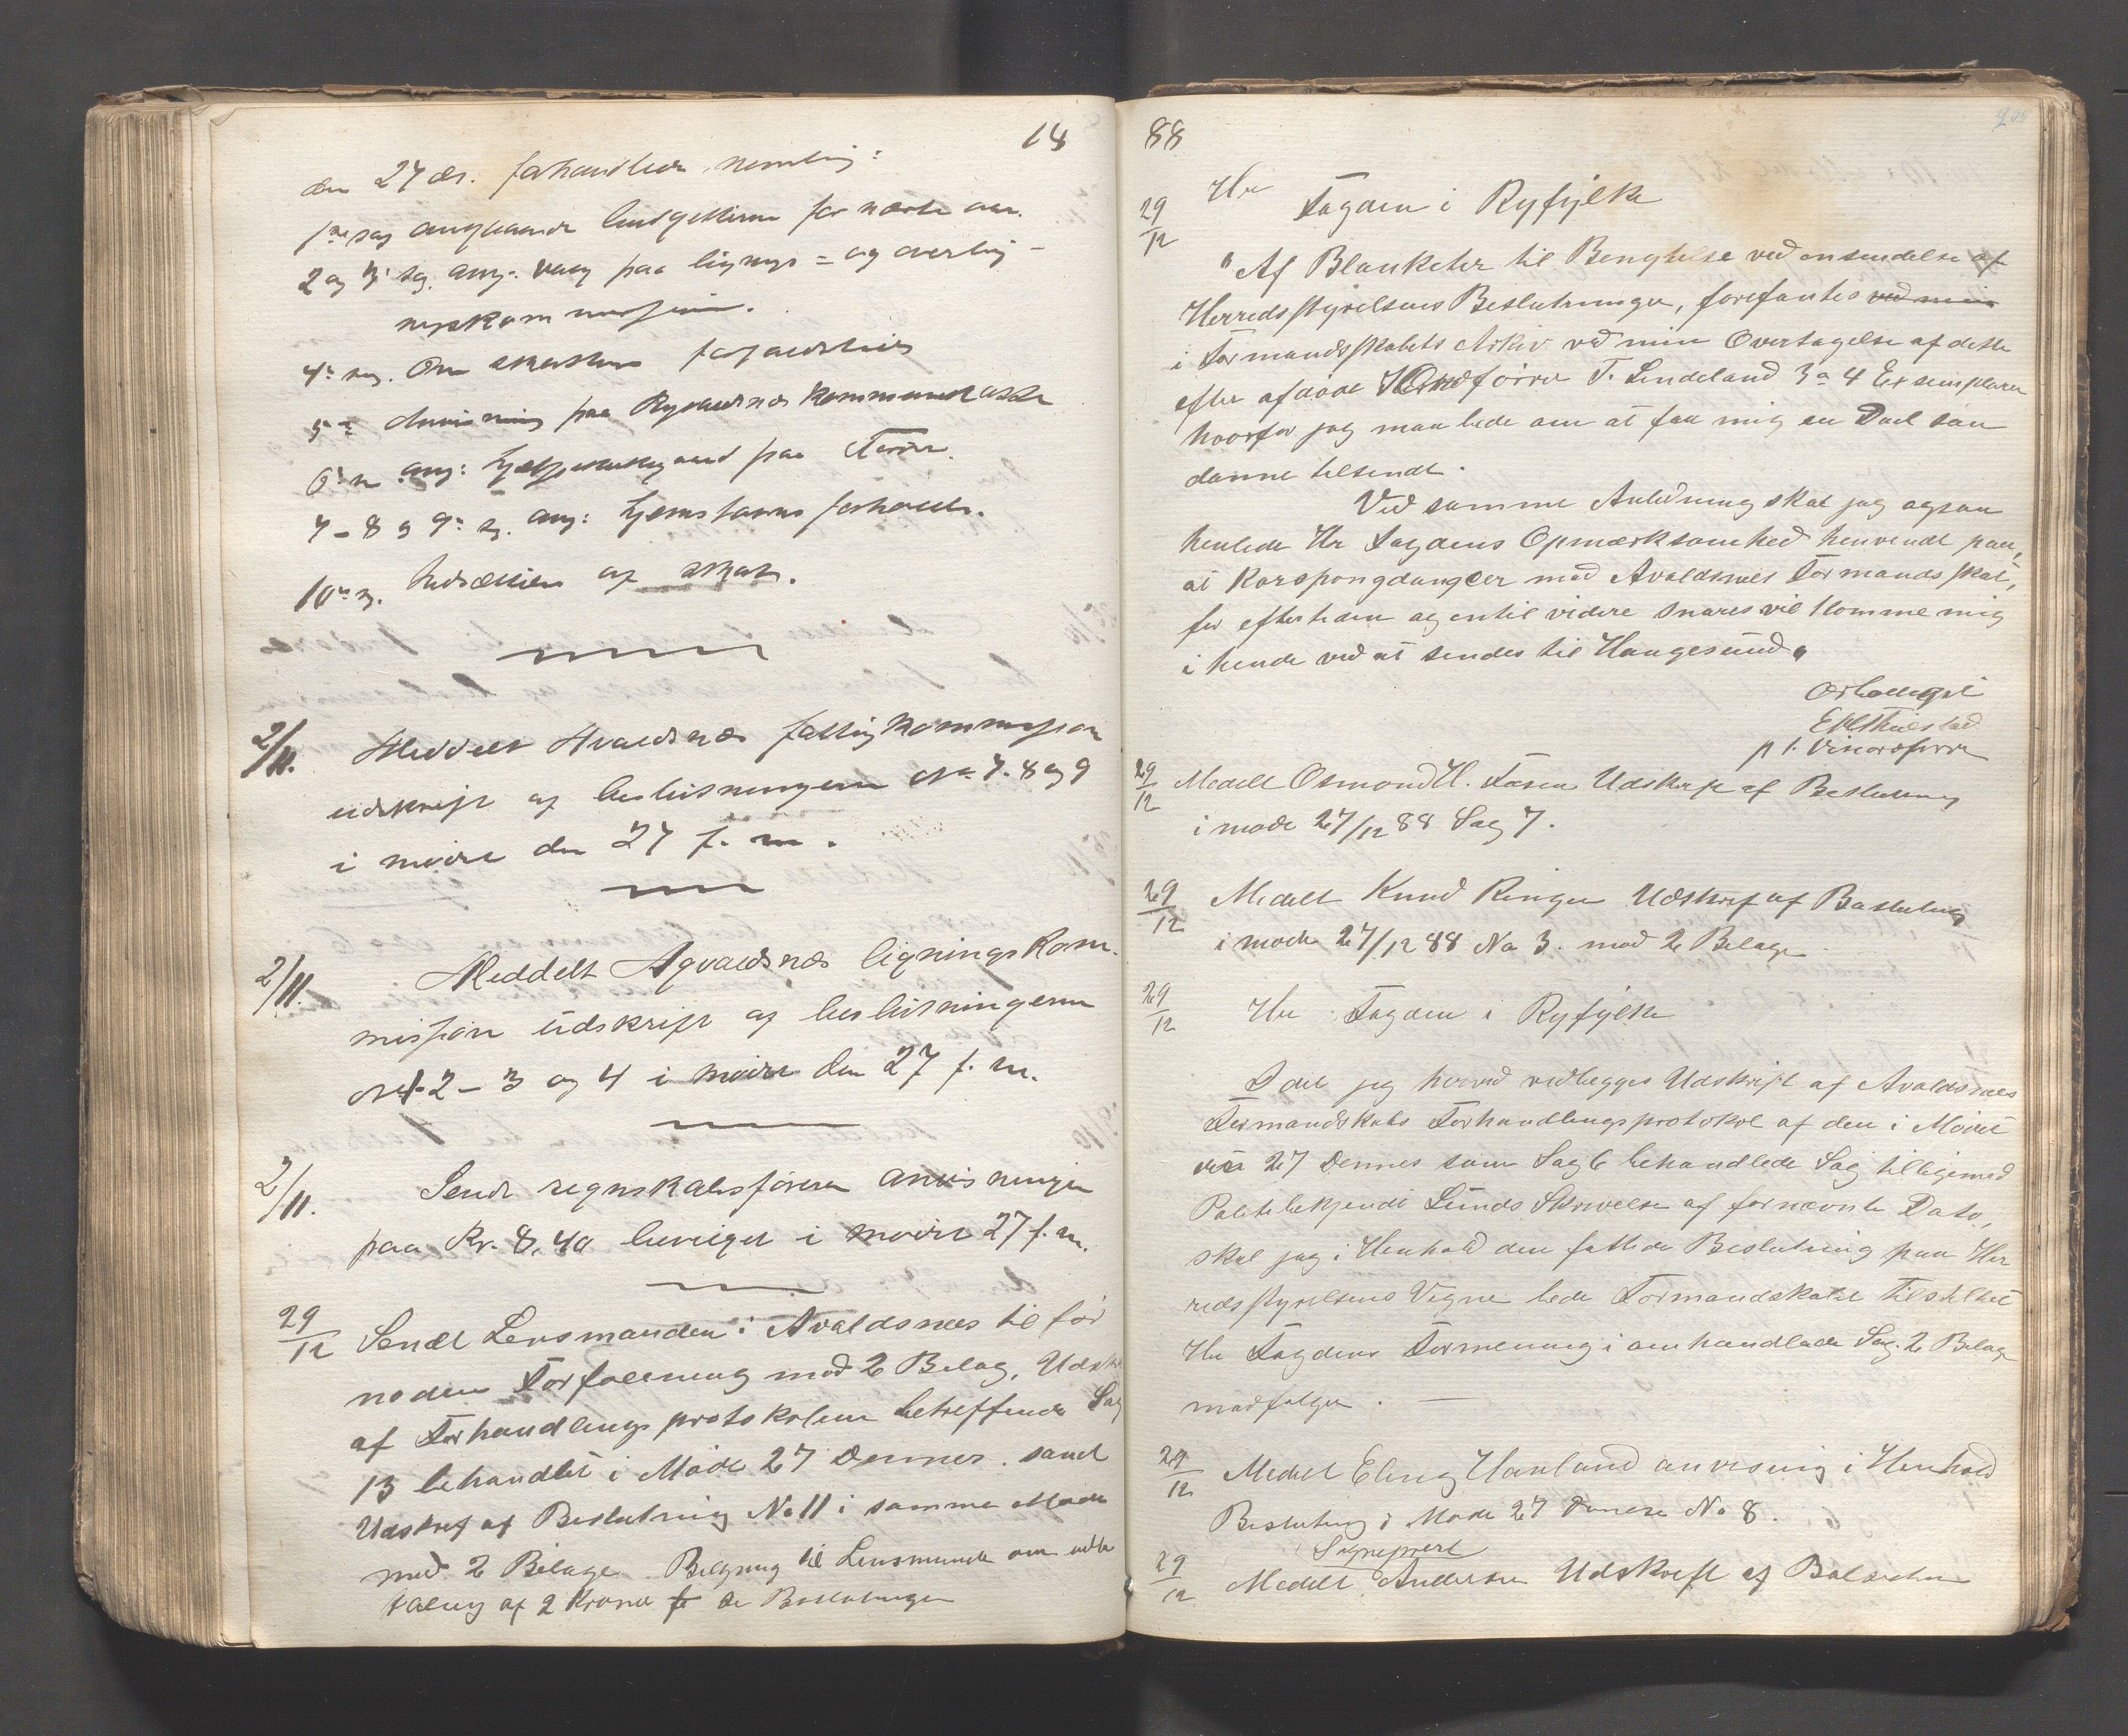 18
den 27 ds. forhandlede nemlig:
1ste sag angaaende budgetterne for næste aar.
2 og 3die sag. ang. valg paa lignings= og overlig-
ningskommissjonen.
4de sag. Om skattens forfaldstid
5te Anvisning paa Avaldsnæs kommunekasse
6te " ang: paa Førre.
7 – 8 og 9de sag. ang: hjemstavns forhold.
10de sag. af skat.
2/11. Meddelt Avaldsnæs fattigkommission
udskrift af beslutningerne No 7. 8 og 9
i mødet den 27 f. m.
2/11. Meddelt Agvaldsnæs ligningskom-
missjon udskrift af beslutningerne
No 1-2-3 og 4 i mødet den 27 f. m.
2/11. Sendt regnskabsføreren anvisningen
paa Kr. 8,40 bevilget i mødet 27 f. m.
29/12 Sendt Lensmanden i Avaldsnæs til for
noden Forføening med 2 Belag, Udskr
af Forhandlingsprotokolen betreffende Sag
13 behandlet i Møde 27 Dennes. samt
Udskrif af Beslutning No 11 i samme Møde
med 2 Bilage Lensmand om udbe
taling af 2 Kroner for de Beslutninger
88
29/12 Hr Fogden i Ryfylke
" Af Blanketer til Benyttelse ved ensendelse af
Herredsstyrelsens Beslutninger, forefantes ved min
i Formandsskabets Arkiv ved min Overtagelse af dette
efter afdøde Ordfører T. Lindeland 3 a 4 Exsemplarer
hvorfor jeg maa bede om at faa mig en Deel saa
danne tilsendt.
Ved samme Anledning skal jeg ogsaa
henlede Hr Fogdens Opmærksomhed henvendt paa,
at Korspongdangcer med Avaldsnæs Formandsskab,
for eftertiden og entil videre snares vil komme mig
i hende ved at sendes til Haugesund "
Ærbødigst
p t. Viseordfører
29/12 Medelt Osmond H. Førre Udskrift af Beslutning
i møde 27/12 88 Sag 7.
29/12 Medelt Knud Ringen Udskrif af Beslutning
i møde 27/12 88 No 3. med 2 Belage
29/12 Hr Fogden i Ryfylke
I det jeg herved vedlegges Udskrift af Avaldsnæs
Formandskabs Forhandlingsprotokol af den i Mødet
27 Dennes som Sag 6 behandlede Sag tilligemed
Politibetjendt Lunds Skrivelse af fornævnte Dato,
skal jeg i Henhold den fattede Beslutning paa Her
redsstyrelsens Vegne bede Formandskabet tilstillet
Hr Fogdens Formening i omhandlede Sag. 2 Belage
medfølger. —
29/12 Medelt Eling Hauland anvisning i Henhold
Beslutning i Møde 27 Dennes No 8.
Sogneprest
29/12 Medelt Andersen Udskreft af